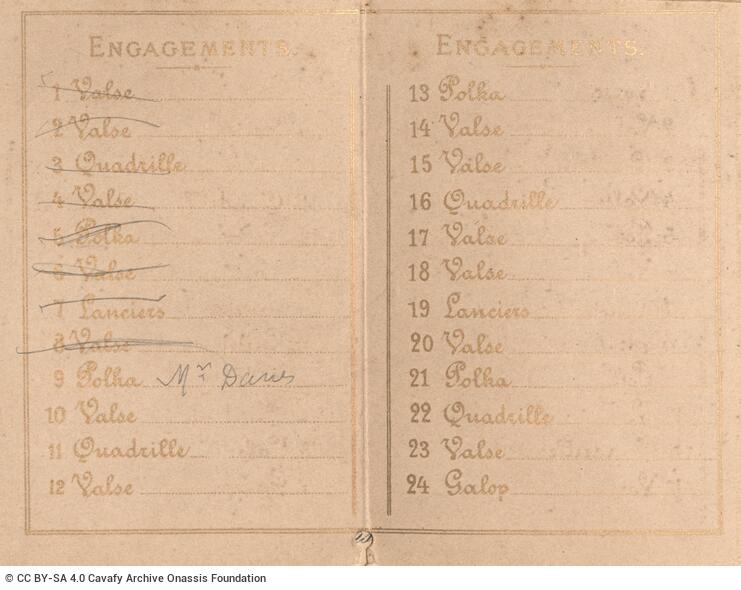 ENGAGEMENTS.
1 Valse
2 Valse
3 Quadrille
4 Valse
5 Polka
6 Valse
7 Lanciers
8 Valse
9 Polka Mr Davies
10 Valse
11 Quadrille
12 Valse
ENGAGEMENTS.
13 Polka
14 Valse
15 Valse
16 Quadrille
17 Valse
18 Valse
19 Lanciers
20 Valse
21 Polka
22 Quadrille
23 Valse
24 Galop
© CC BY-SA 4.0 Cavafy Archive Onassis Foundation